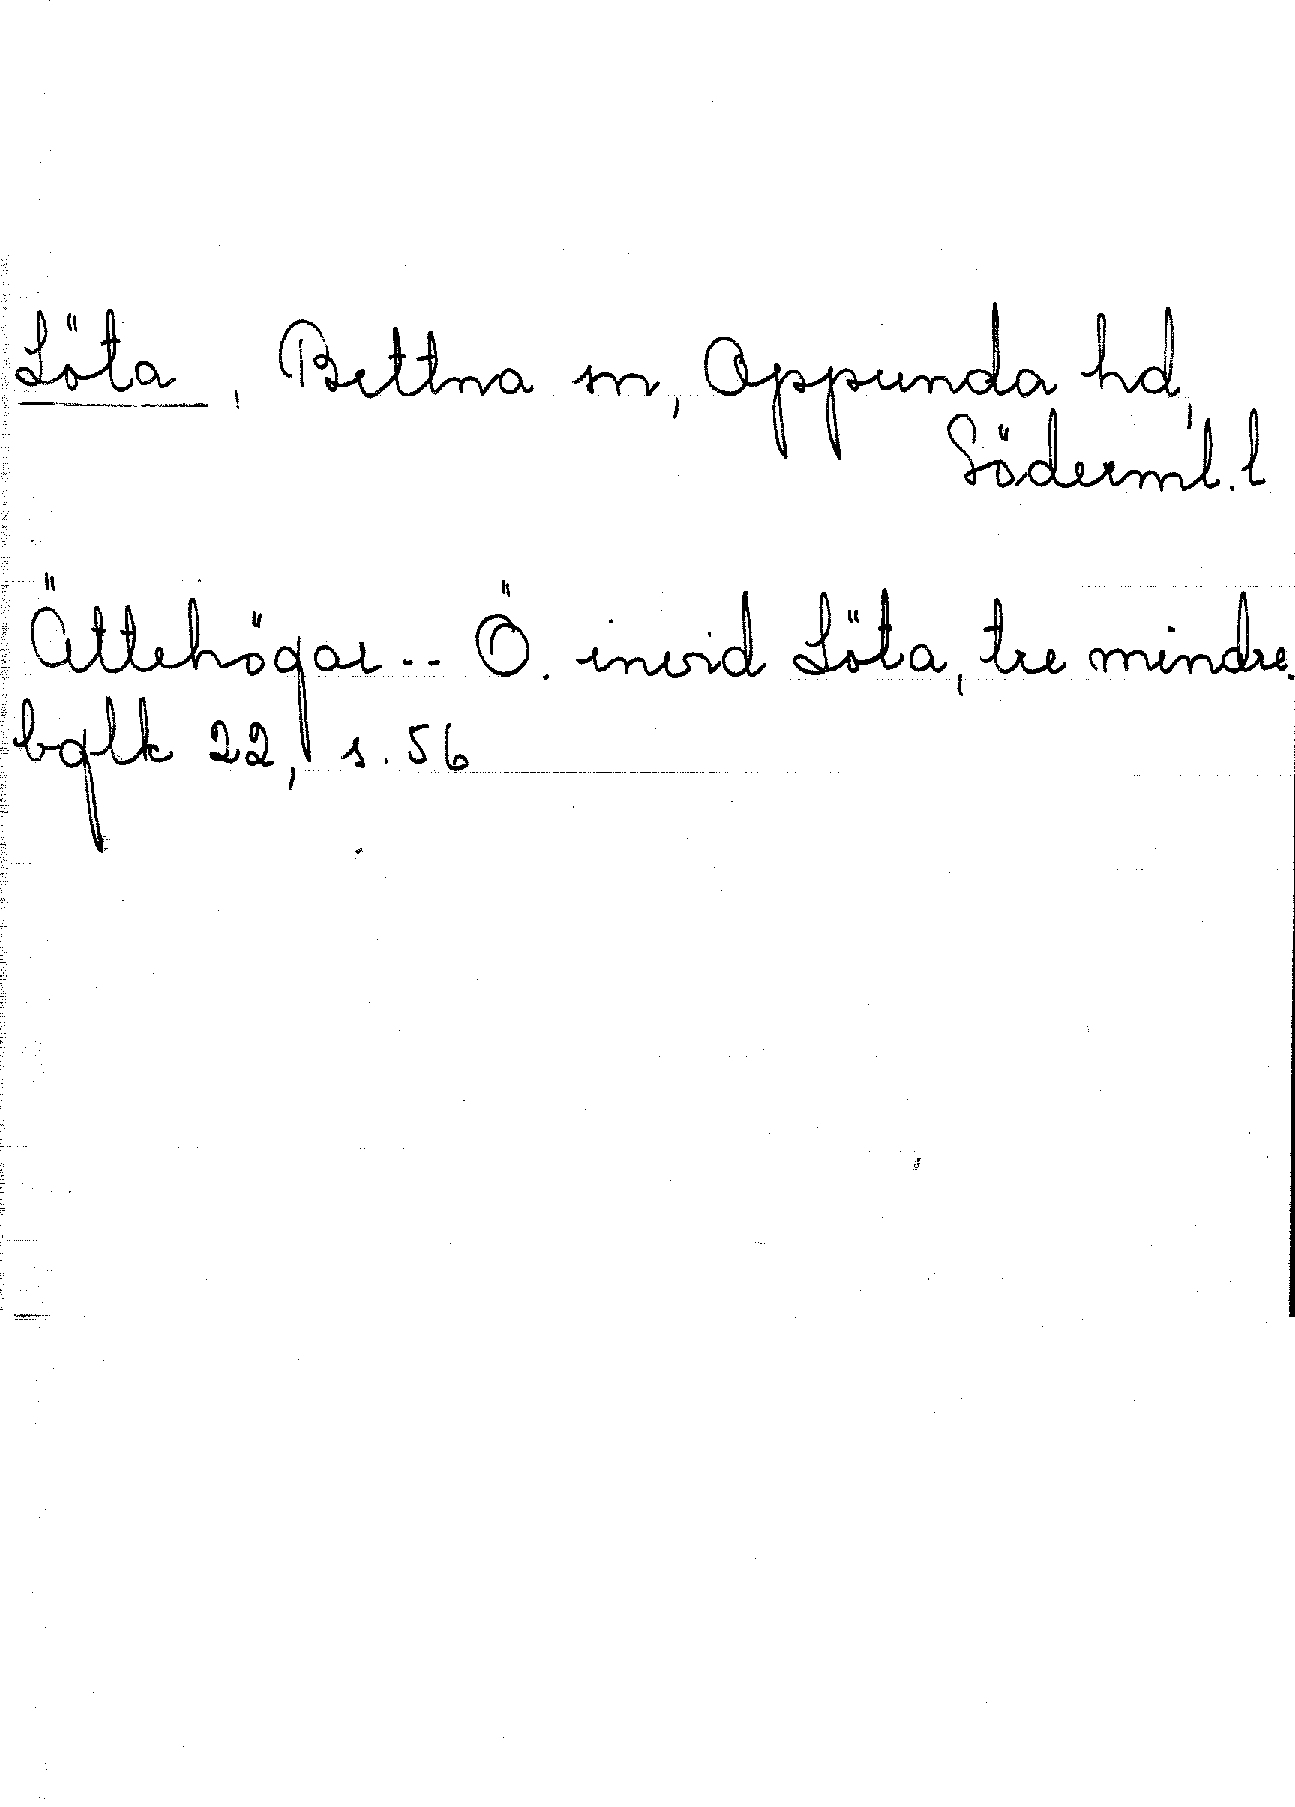 Löta, Bettna sn, Oppunda hd,
Söderml. l
Ättehögar -- Ö. invid Löta, tre mindre.
bglk 22, s. 56